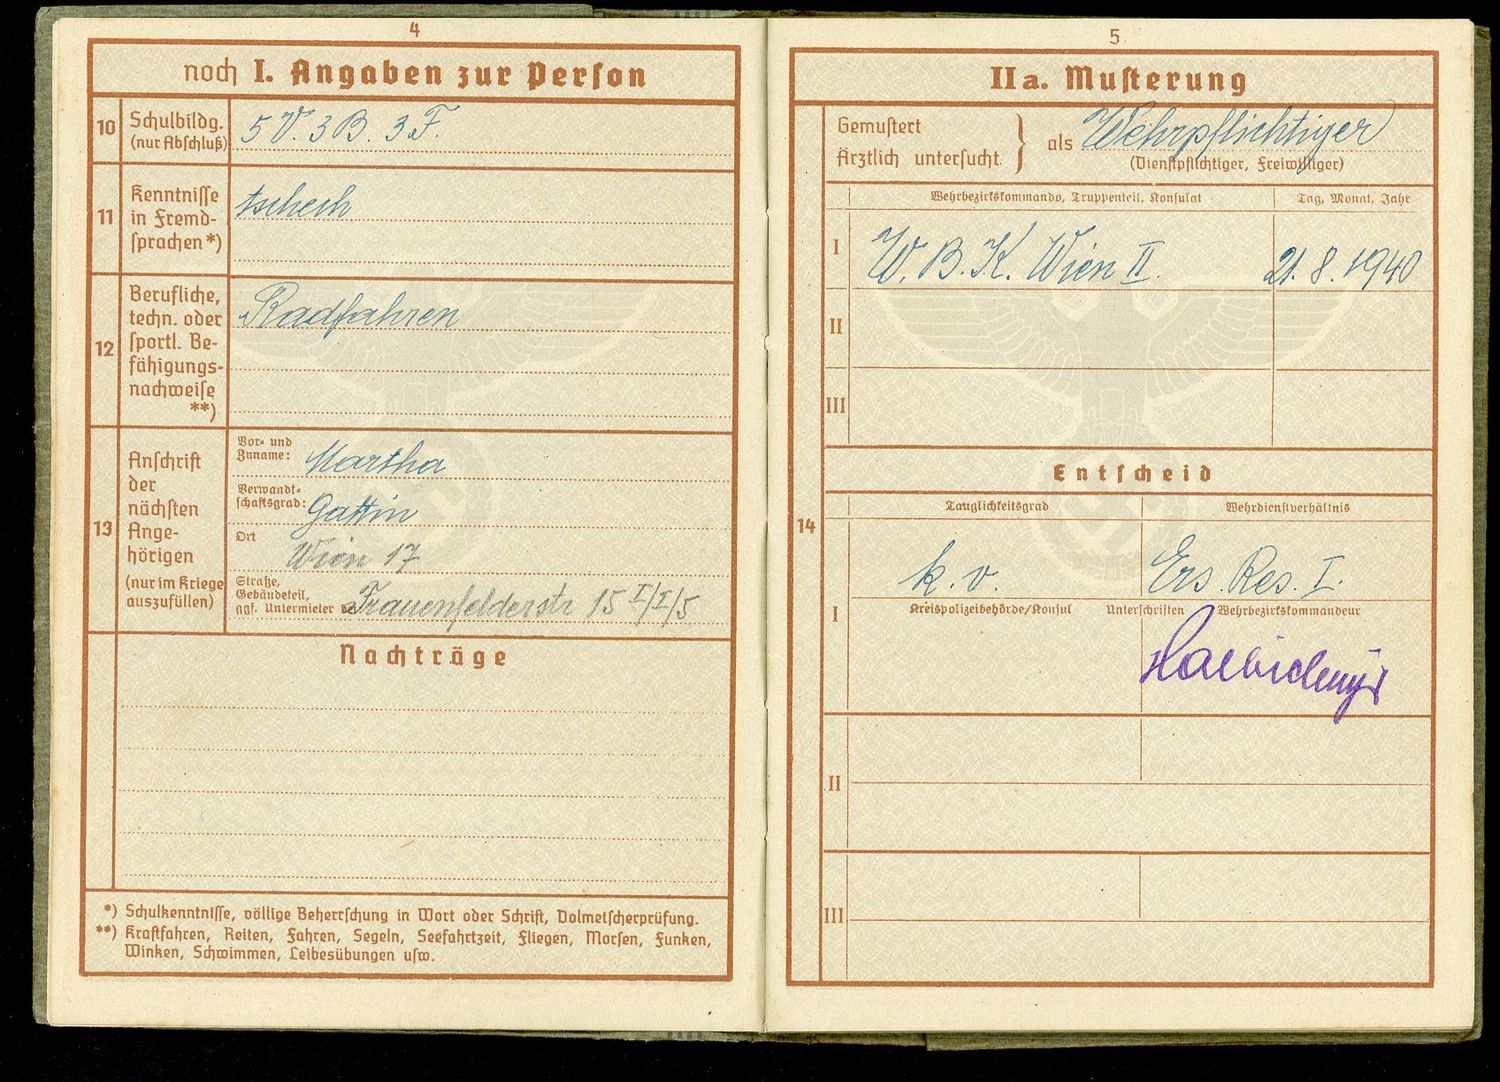 4
noch I. Angaben zur Person
10
Schulbildg.
(nur Abschluß)
5 V. 3 B. 3 F.
11
Kenntnisse
in Fremd-
sprachen *)
tschech
12
Berufliche,
techn. oder
sportl. Be-
fähigungs-
nachweise
**)
Radfahren
13
Anschrift
der
nächsten
Ange-
hörigen
(nur im Kriege
auszufüllen)
Vor- und
Zuname: Martha
Verwandt-
schaftsgrad: Gattin
Ort
Wien 17
Straße,
Gebäudeteil,
ggf. Untermieter Frauenfelderstr 15 I/I/5
Nachträge
*) Schulkenntnisse, völlige Beherrschung in Wort oder Schrift, Dolmetscherprüfung.
**) Kraftfahren, Reiten, Fahren, Segeln, Seefahrtzeit, Fliegen, Morsen, Funken,
Winken, Schwimmen, Leibesübungen usw.
5
IIa. Musterung
14
Gemustert
Ärztlich untersucht
als Wehrpflichtiger
(Dienstpflichtiger, Freiwilliger)
Wehrbezirkskommando, Truppenteil, Konsulat Tag, Monat, Jahr
I W. B. K. Wien II 21. 8. 1940
II
III
Entscheid
Tauglichkeitsgrad Wehrdienstverhältnis
I
k. v. Ers. Res. I.
Kreispolizeibehörde/Konsul Unterschriften Wehrbezirkskommandeur
II
III